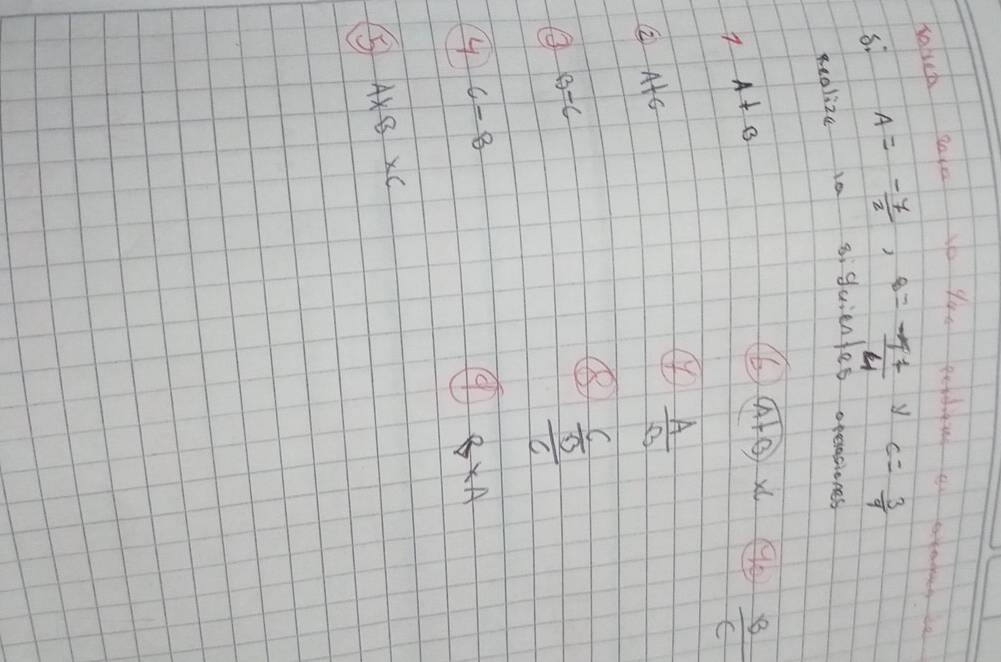 Si A = -7/2, B = -7/4 y C = 3/7
realiza la siguientes operaciones
1 A + B
② A+C
③ B-C
④ C - B
⑤ A x B x C
⑥ (A+B) x
⑦ A/B
⑧ C/B/C
⑨ B x A
⑩ B/C